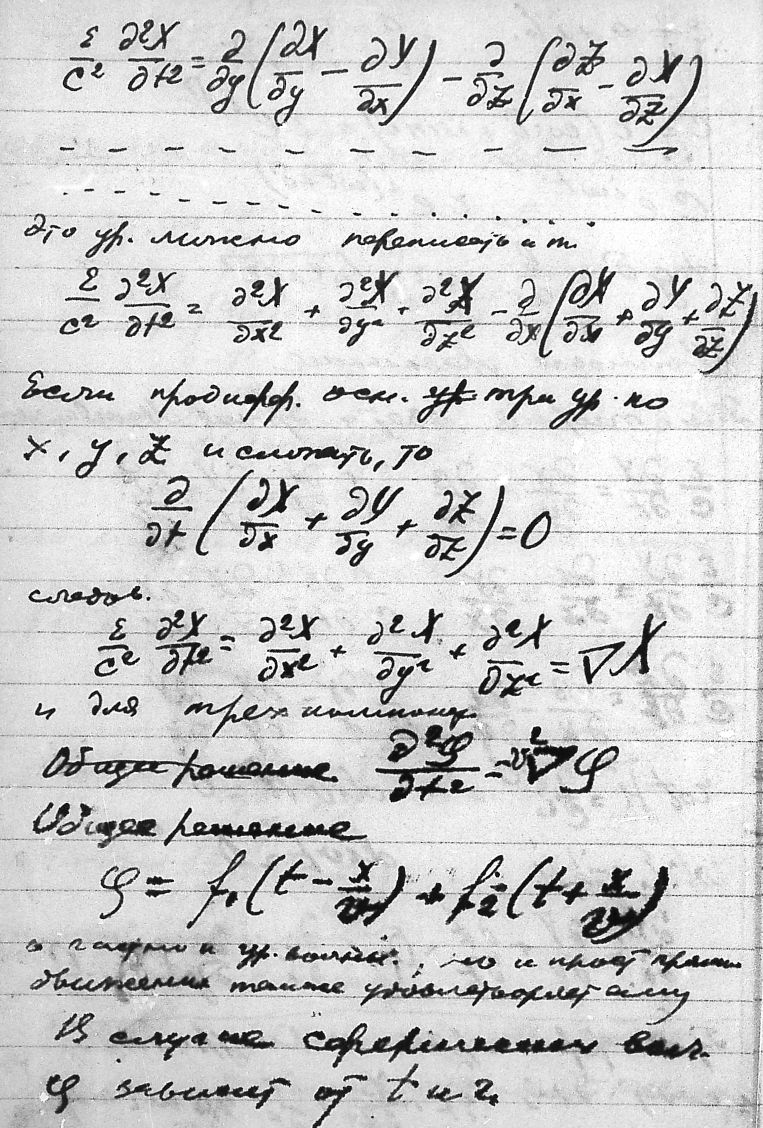 ε/c² ∂²X/∂t² = ∂/∂y (∂X/∂y − ∂Y/∂x) − ∂/∂z (∂Z/∂x − ∂X/∂z)
Это ур. можно переписать и т.
ε/c² ∂²X/∂t² = ∂²X/∂x² + ∂²X/∂y² + ∂²X/∂z² − ∂/∂x (∂X/∂x + ∂Y/∂y + ∂Z/∂z)
Если продифф. осн. ур. три ур. по
x, y, z и сложить, то
∂/∂t (∂X/∂x + ∂Y/∂y + ∂Z/∂z) = 0
следов.
ε/c² ∂²X/∂t² = ∂²X/∂x² + ∂²X/∂y² + ∂²X/∂z² = ∇X
и для трех компонент
Общее решение ∂²φ/∂t² = v²∇φ
Общее решение
φ = f₁(t − x/v) + f₂(t + x/v)
ур. волны, но и прост
движения также удовлетворяет ему
В случае сферических волн
φ зависит от t и r.